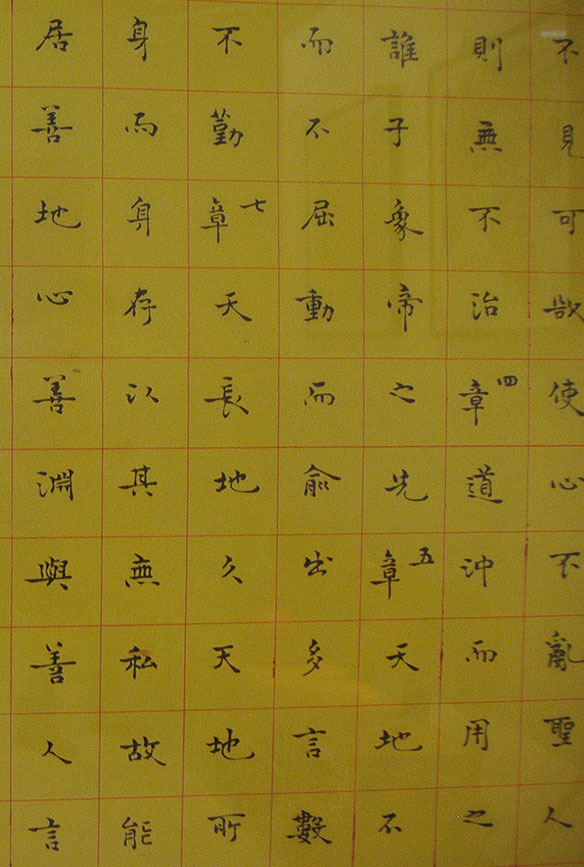 不見可欲使心不亂聖人
則無不治四章道沖而用之
誰子象帝之先五章天地不
而不屈動而俞出多言數
不勤七章天長地久天地所
身而身存以其無私故能
居善地心善淵與善人言